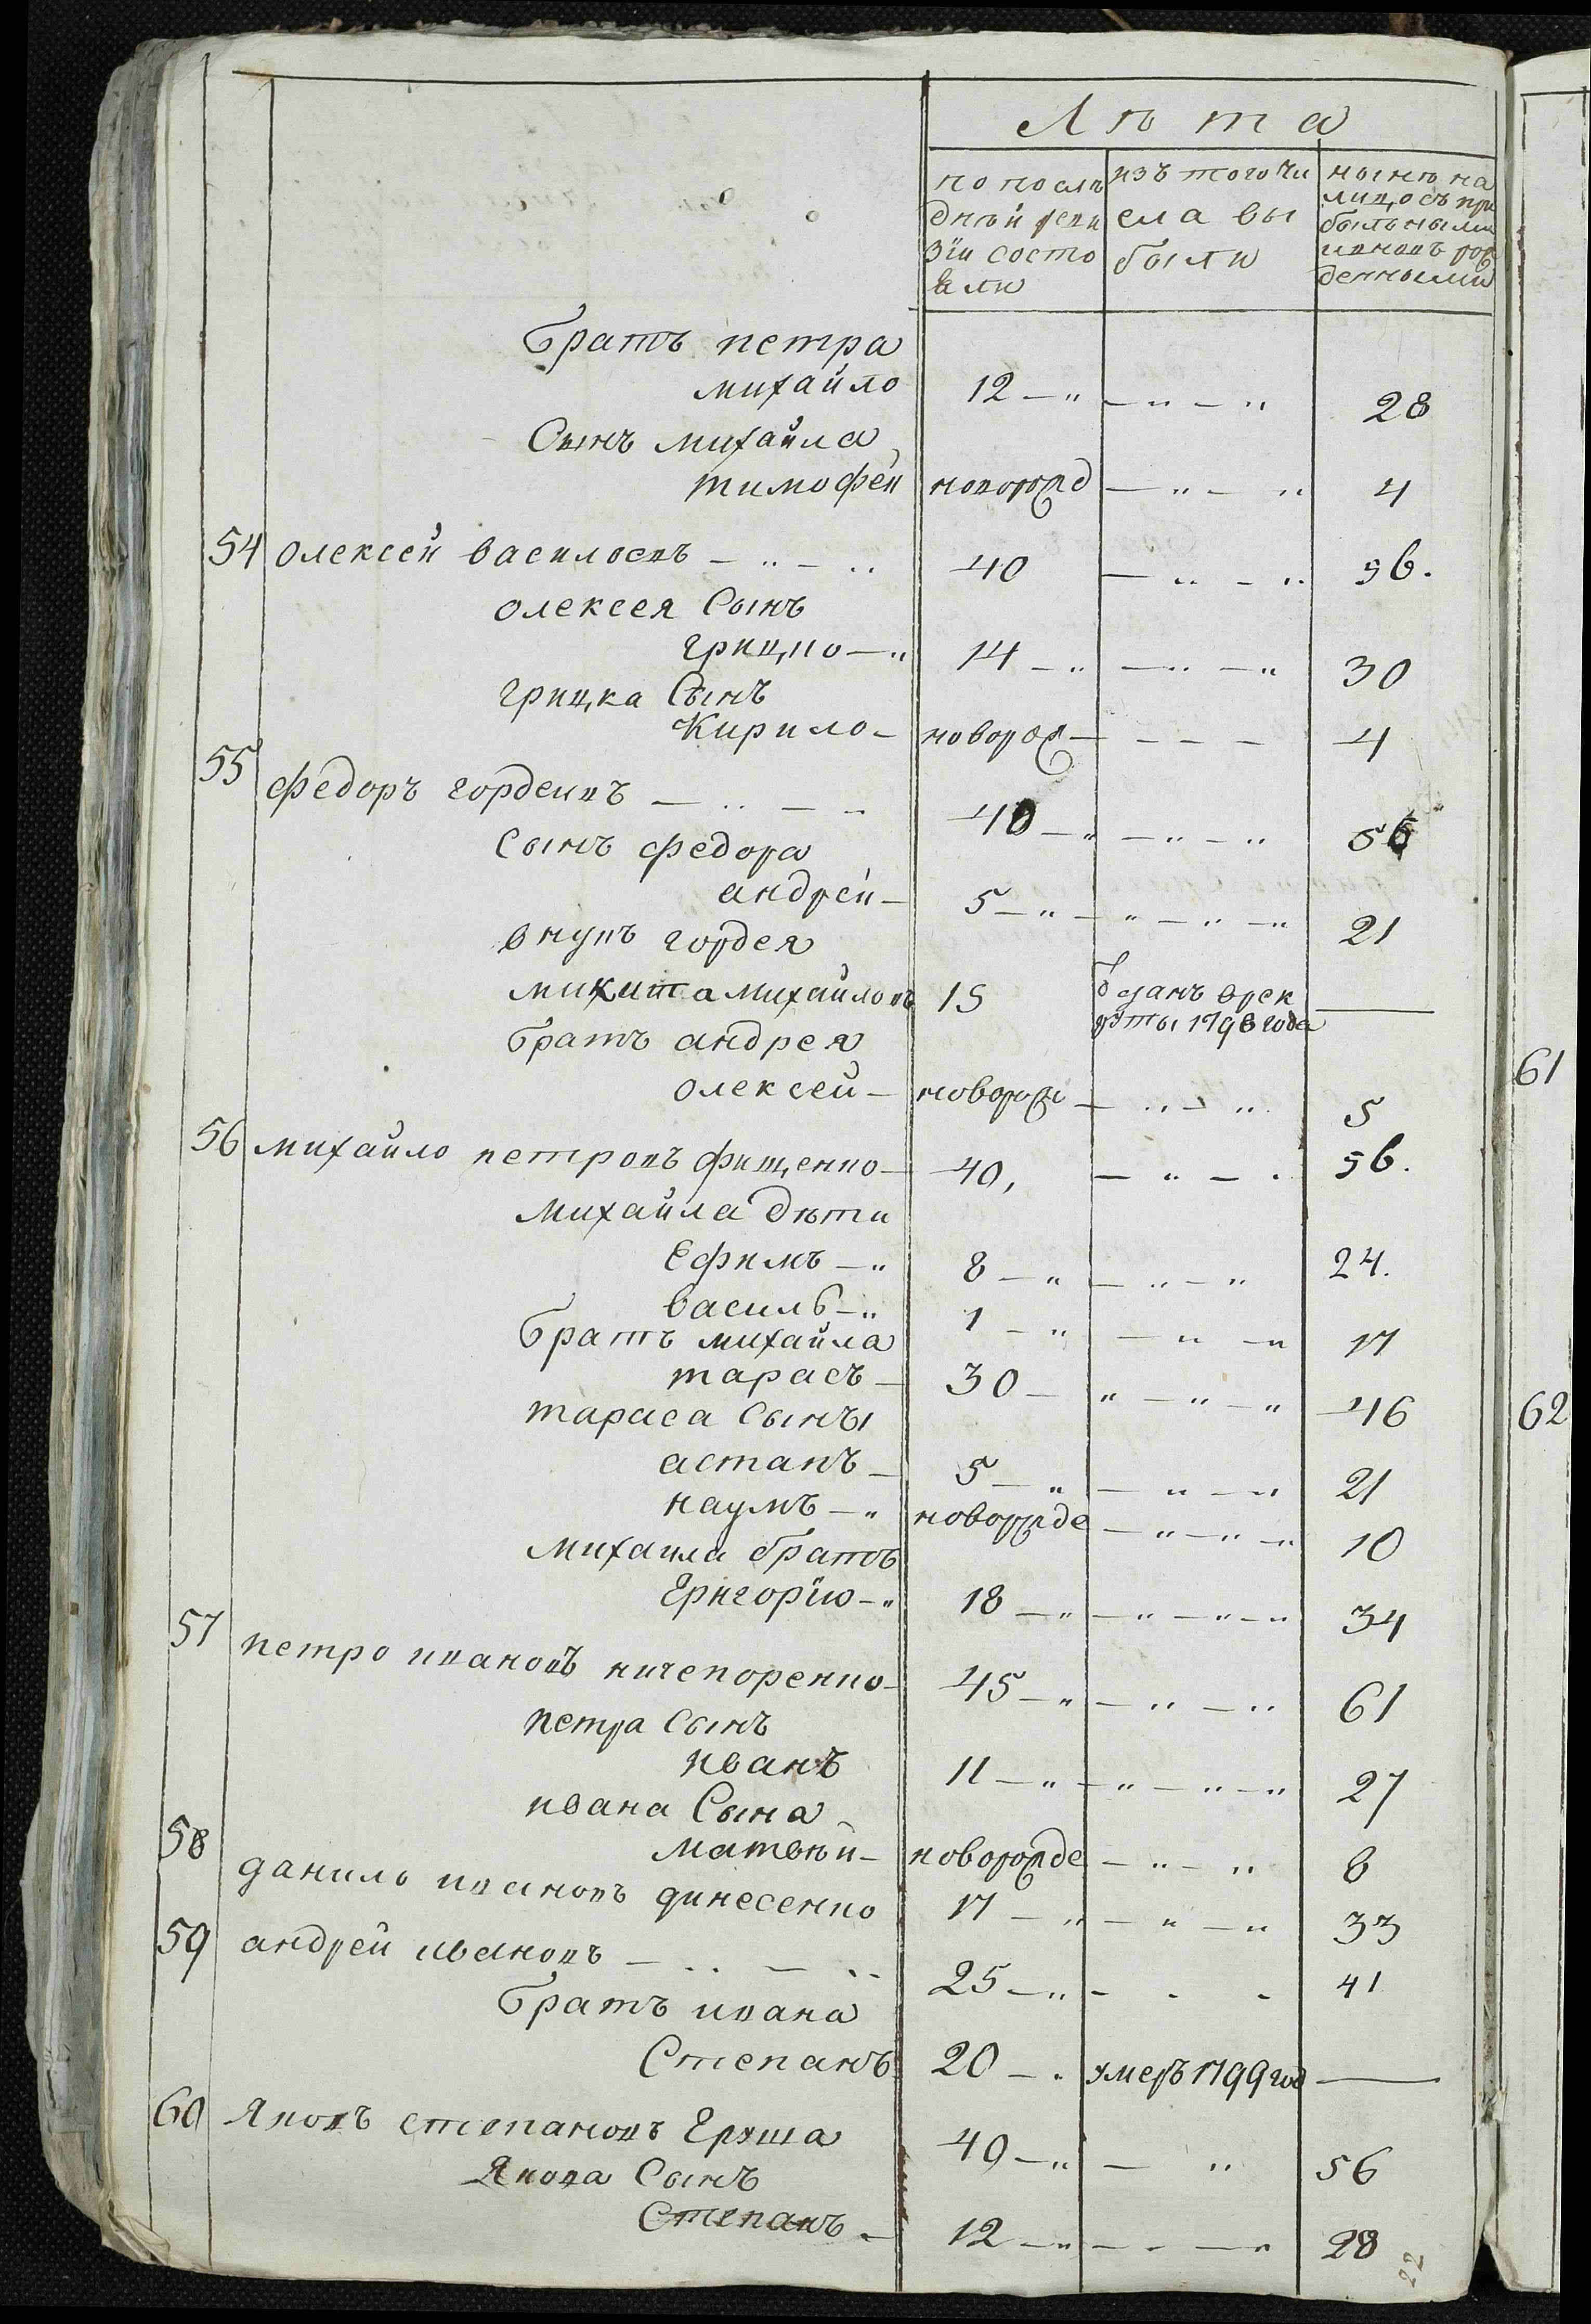 Лѣта
по послѣ изъ того чи нынѣ на
дней реви сла вы лицо съ при
зїи состо были былыми
яли и вновь рож
денными
братъ петра
михайло 12 — „ — „ — „ 28
Сынъ михайла
тимофей новорожд — „ — „ 4
54 олексей василовъ — „ — „ 40 — „ — „ 56.
олексея Сынъ
грицко — „ 14 — „ — „ — „ 30
грицка Сынъ
Кирило — новорож — — — — 4
55 федоръ гордеивъ — „ — — 40 — „ — „ — „ 56
сынъ федора
андрей — 5 — „ — „ — „ — „ 21
внукъ гордея
микита михайловъ 15 ѳрек —
руты 1798 года
братъ андрея
олексей — новорож — „ — „ 5
56 михайло петровъ фищенко — 40, — „ — „ 56.
михайла дѣти
Ефимъ — „ 8 — „ — „ — „ 24.
василь — „ 1 — „ — „ — „ 17
братъ михайла
тарасъ — 30 — „ — „ — „ 46
тараса Сыны
астапъ — 5 — „ — „ — „ 21
наумъ — „ новорожде — „ — „ — „ 10
михаила братъ
Григорїю — „ 18 — „ — „ — „ — „ 34
57 петро ивановъ ничепоренко — 45 — „ — „ — „ 61
петра Сынъ
иванъ 11 — „ — „ — „ — „ 27
ивана Сына
матвѣй — новорожде — „ — „ 8
58 данило ивановъ динесенко 17 — „ — „ — „ 33
59 андрей ивановъ — „ — „ 25 — „ — - - 41
братъ ивана
Степанъ 20 — „ умеръ 1799 год —
60 Яковъ степановъ Ерѫша 40 — „ — „ 56
Якова Сынъ
Степанъ — 12 — „ — - — „ 28
22
61
62